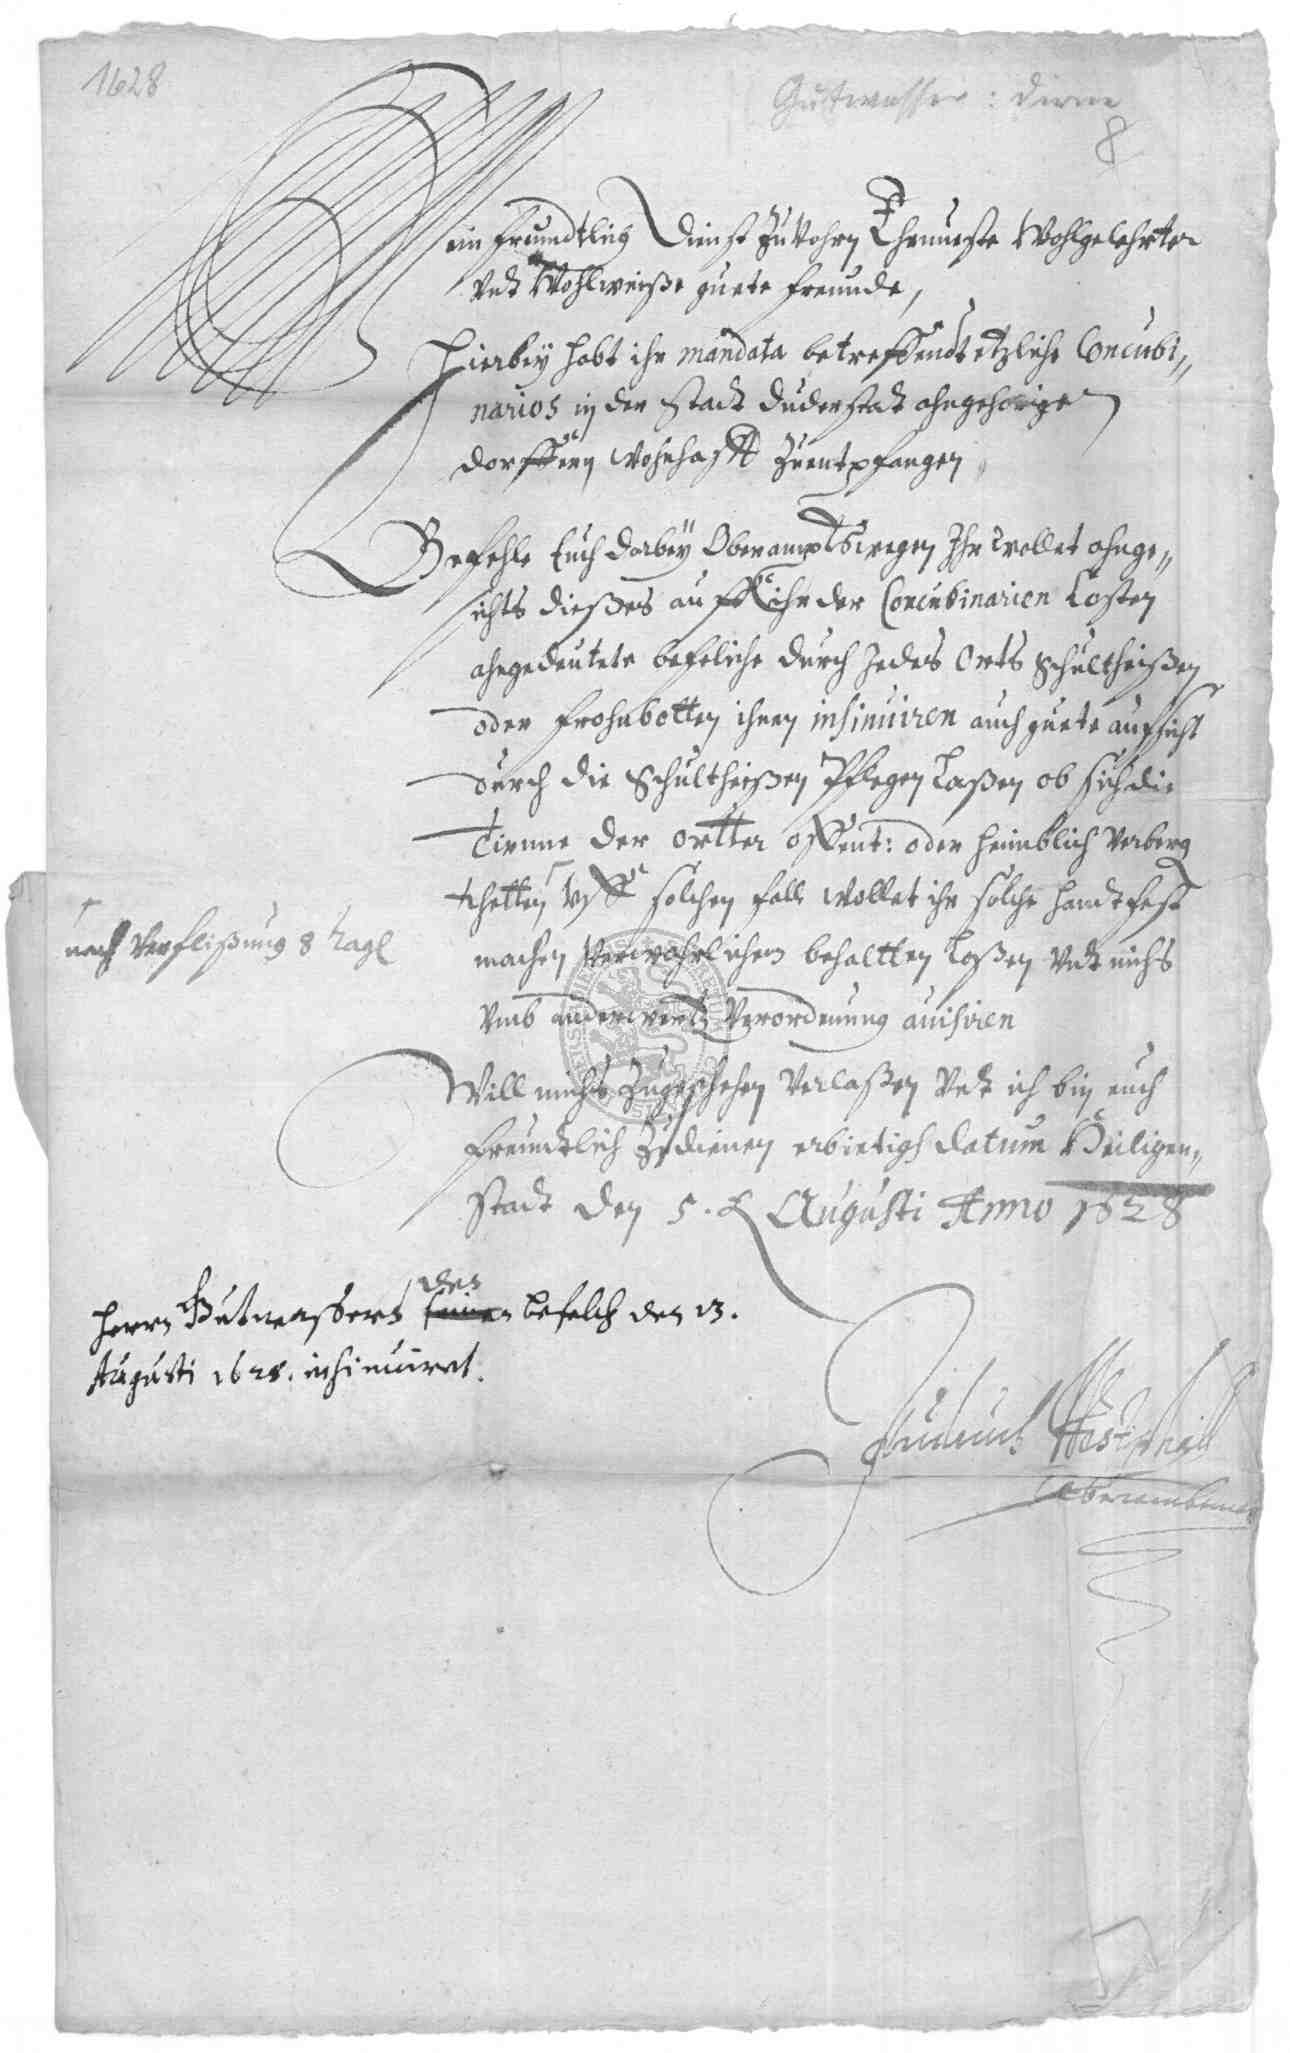 1628
Gutwasser: dirne
8
Mein freundtlich dienst Zuvohrn Ehrnueste Wohlgelehrter
Undt Wohlweiße guete freunde,
Hierbey habt ihr mandata betreffendt etzliche Concubi„
narios in der Stadt duderstadt ahngehorigen
dorffern wohnhafft Zu entpfangen
Befehle Euch darbey Oberamptswegen Ihr wollet ahnge„
sichts dießes auff ihr der Concubinarien Costen
ahngedeutete befeliche durch Jedes Orts Schultheißen
oder frohnbotten ihnen insinuiren auch guete aufsicht
durch die Schultheißen Pflegen laßen ob sich die
Dirnne der ortter offent: oder heimblich verberg
hetten Uff solchen fall wollet ihr solche handtfest
nach verflißung 8 tagl
machen verwahrlichen behaltten laßen Undt michs
Umb anderwertz Verordenung auisiren
Will michs Zugeschehen Verlaßen Undt ich bin euch
freundtlich Zu dienen erbietigh datum Heiligen„
Stadt den 5. Augusti Anno 1628
den
Herrn Gutwassers seinen befelch den 13.
Augusti 1628. insinuiret.
Oberambtman